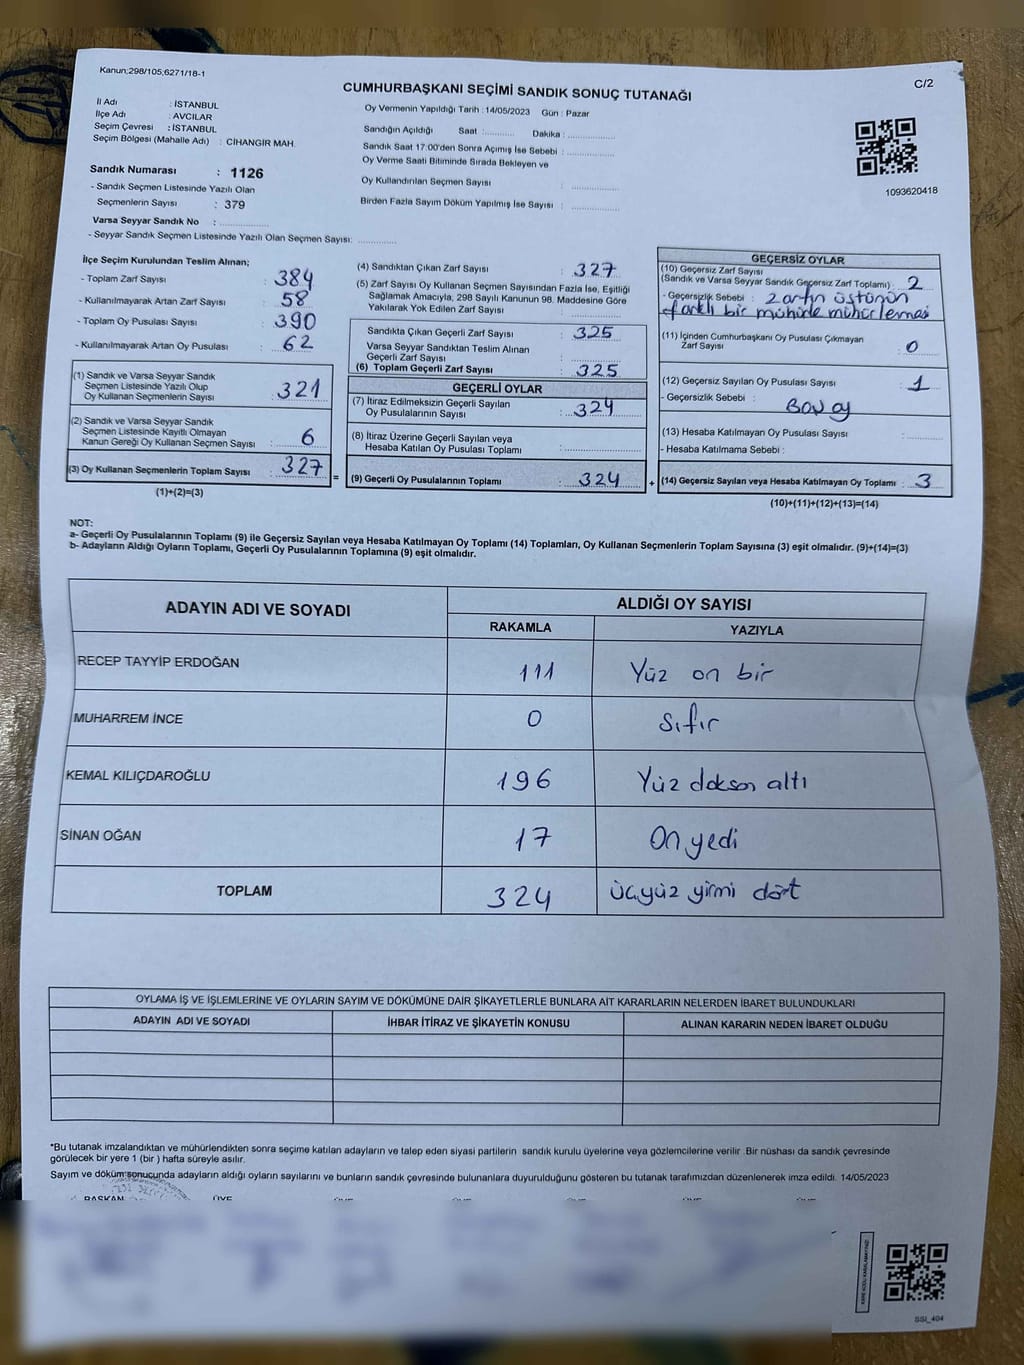 Kanun;298/105,6271/18-1
C/2
CUMHURBAŞKANI SEÇİMİ SANDIK SONUÇ TUTANAĞI
İl Adı : İSTANBUL
İlçe Adı : AVCILAR
Seçim Çevresi : İSTANBUL
Seçim Bölgesi (Mahalle Adı) : CİHANGİR MAH.
Sandık Numarası : 1126
- Sandık Seçmen Listesinde Yazılı Olan
Seçmenlerin Sayısı : 379
Varsa Seyyar Sandık No : ..............
- Seyyar Sandık Seçmen Listesinde Yazılı Olan Seçmen Sayısı: ............
Oy Vermenin Yapıldığı Tarih : 14/05/2023 Gün : Pazar
Sandığın Açıldığı Saat :.......... Dakika : ...............
Sandık Saat 17:00'den Sonra Açımış İse Sebebi : ...............
Oy Verme Saati Bitiminde Sırada Bekleyen ve
Oy Kullandırılan Seçmen Sayısı : ...............
Birden Fazla Sayım Döküm Yapılmış İse Sayısı : ...............
1093620418
İlçe Seçim Kurulundan Teslim Alınan;
- Toplam Zarf Sayısı : 384
- Kullanılmayarak Artan Zarf Sayısı : 58
- Toplam Oy Pusulası Sayısı : 390
- Kullanılmayarak Artan Oy Pusulası : 62
(1) Sandık ve Varsa Seyyar Sandık
Seçmen Listesinde Yazılı Olup
Oy Kullanan Seçmenlerin Sayısı : 321
(2) Sandık ve Varsa Seyyar Sandık
Seçmen Listesinde Kayıtlı Olmayan
Kanun Gereği Oy Kullanan Seçmen Sayısı : 6
(3) Oy Kullanan Seçmenlerin Toplam Sayısı : 327 =
(1)+(2)=(3)
(4) Sandıktan Çıkan Zarf Sayısı : 327
(5) Zarf Sayısı Oy Kullanan Seçmen Sayısından Fazla İse, Eşitliği
Sağlamak Amacıyla, 298 Sayılı Kanunun 98. Maddesine Göre
Yakılarak Yok Edilen Zarf Sayısı : ...............
Sandıkta Çıkan Geçerli Zarf Sayısı : 325
Varsa Seyyar Sandıktan Teslim Alınan
Geçerli Zarf Sayısı : ...............
(6) Toplam Geçerli Zarf Sayısı : 325
GEÇERLİ OYLAR
(7) İtiraz Edilmeksizin Geçerli Sayılan
Oy Pusulalarının Sayısı : 324
(8) İtiraz Üzerine Geçerli Sayılan veya
Hesaba Katılan Oy Pusulası Toplamı : ...............
(9) Geçerli Oy Pusulalarının Toplamı : 324 +
GEÇERSİZ OYLAR
(10) Geçersiz Zarf Sayısı
(Sandık ve Varsa Seyyar Sandık Geçersiz Zarf Toplamı) : 2
- Geçersizlik Sebebi : 2 zarfın üstünün
farklı bir mühürle mühürlemesi
(11) İçinden Cumhurbaşkanı Oy Pusulası Çıkmayan
Zarf Sayısı : 0
(12) Geçersiz Sayılan Oy Pusulası Sayısı : 1
- Geçersizlik Sebebi : Boş oy
(13) Hesaba Katılmayan Oy Pusulası Sayısı : ..........
- Hesaba Katılmama Sebebi :
(14) Geçersiz Sayılan veya Hesaba Katılmayan Oy Toplamı : 3
(10)+(11)+(12)+(13)=(14)
NOT:
a- Geçerli Oy Pusulalarının Toplamı (9) ile Geçersiz Sayılan veya Hesaba Katılmayan Oy Toplamı (14) Toplamları, Oy Kullanan Seçmenlerin Toplam Sayısına (3) eşit olmalıdır. (9)+(14)=(3)
b- Adayların Aldığı Oyların Toplamı, Geçerli Oy Pusulalarının Toplamına (9) eşit olmalıdır.
ADAYIN ADI VE SOYADI ALDIĞI OY SAYISI
RAKAMLA YAZIYLA
RECEP TAYYİP ERDOĞAN 111 Yüz on bir
MUHARREM İNCE 0 sıfır
KEMAL KILIÇDAROĞLU 196 Yüz doksan altı
SİNAN OĞAN 17 On yedi
TOPLAM 324 üçyüz yirmi dört
OYLAMA İŞ VE İŞLEMLERİNE VE OYLARIN SAYIM VE DÖKÜMÜNE DAİR ŞİKAYETLERLE BUNLARA AİT KARARLARIN NELERDEN İBARET BULUNDUKLARI
ADAYIN ADI VE SOYADI İHBAR İTİRAZ VE ŞİKAYETİN KONUSU ALINAN KARARIN NEDEN İBARET OLDUĞU
*Bu tutanak imzalandıktan ve mühürlendikten sonra seçime katılan adayların ve talep eden siyasi partilerin sandık kurulu üyelerine veya gözlemcilerine verilir .Bir nüshası da sandık çevresinde
görülecek bir yere 1 (bir ) hafta süreyle asılır.
Sayım ve döküm sonucunda adayların aldığı oyların sayılarını ve bunların sandık çevresinde bulunanlara duyurulduğunu gösteren bu tutanak tarafımızdan düzenlenerek imza edildi. 14/05/2023
BAŞKAN ÜYE ÜYE ÜYE ÜYE ÜYE
KARE KODU KARALAMAYINIZ!
SSI_404